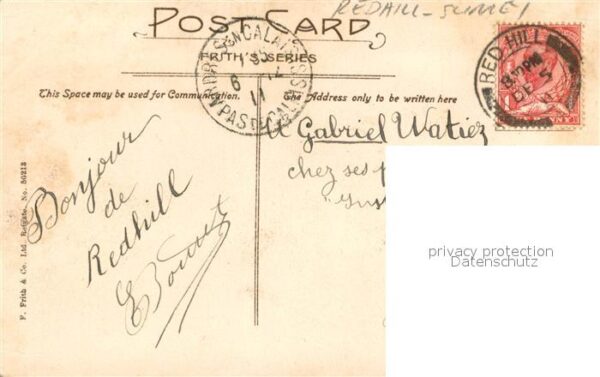 REDHILL - SURREY
POST CARD
FRITH'S SERIES
This Space may be used for Communication.
The Address only to be written here
RED HILL
DE 5
11
CALAIS
6 12
11
PAS DE CALAIS
Gabriel Watiez
chez ses
Bonjour
de
Redhill
F. Frith & Co. Ltd. Reigate. No. 50213
privacy protection
Datenschutz